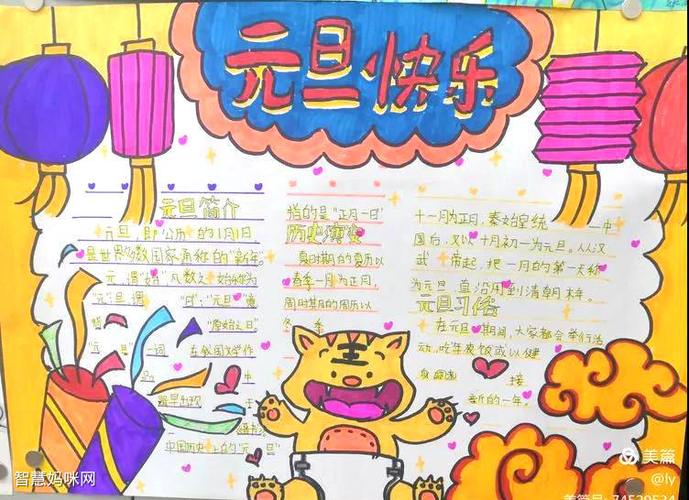 元旦快乐
元旦简介
元旦，即公历的1月1日
是世界多数国家通称的"新年"
元，谓"始"，凡数之始称为
"元"旦谓"日"；"元旦"意
"原始之日"
"元旦"一词
最早出现于
中国历史上的"元旦"
指的是"正月一日"
历史演变
夏时期的夏历以
春季一月为正月，
周时期的周历以
冬季
十一月为正月，秦始皇统一中
国后，又以十月初一为元旦。从汉
武帝起，把一月的第一天称
为元旦，一直沿用到清朝末年。
元旦习俗
在元旦期间，大家都会举行活
动，吃年夜饭或以健
身 迎接
新的一年。
智慧妈咪网
美篇
@ly
美篇号: 74529534